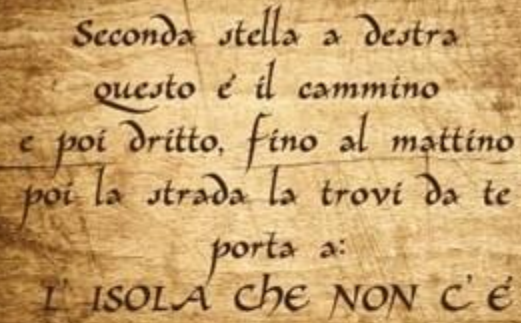 Seconda stella a destra
questo é il cammino
e poi dritto, fino al mattino
poi la strada la trovi da te
porta a:
L' ISOLA ChE NON C' É